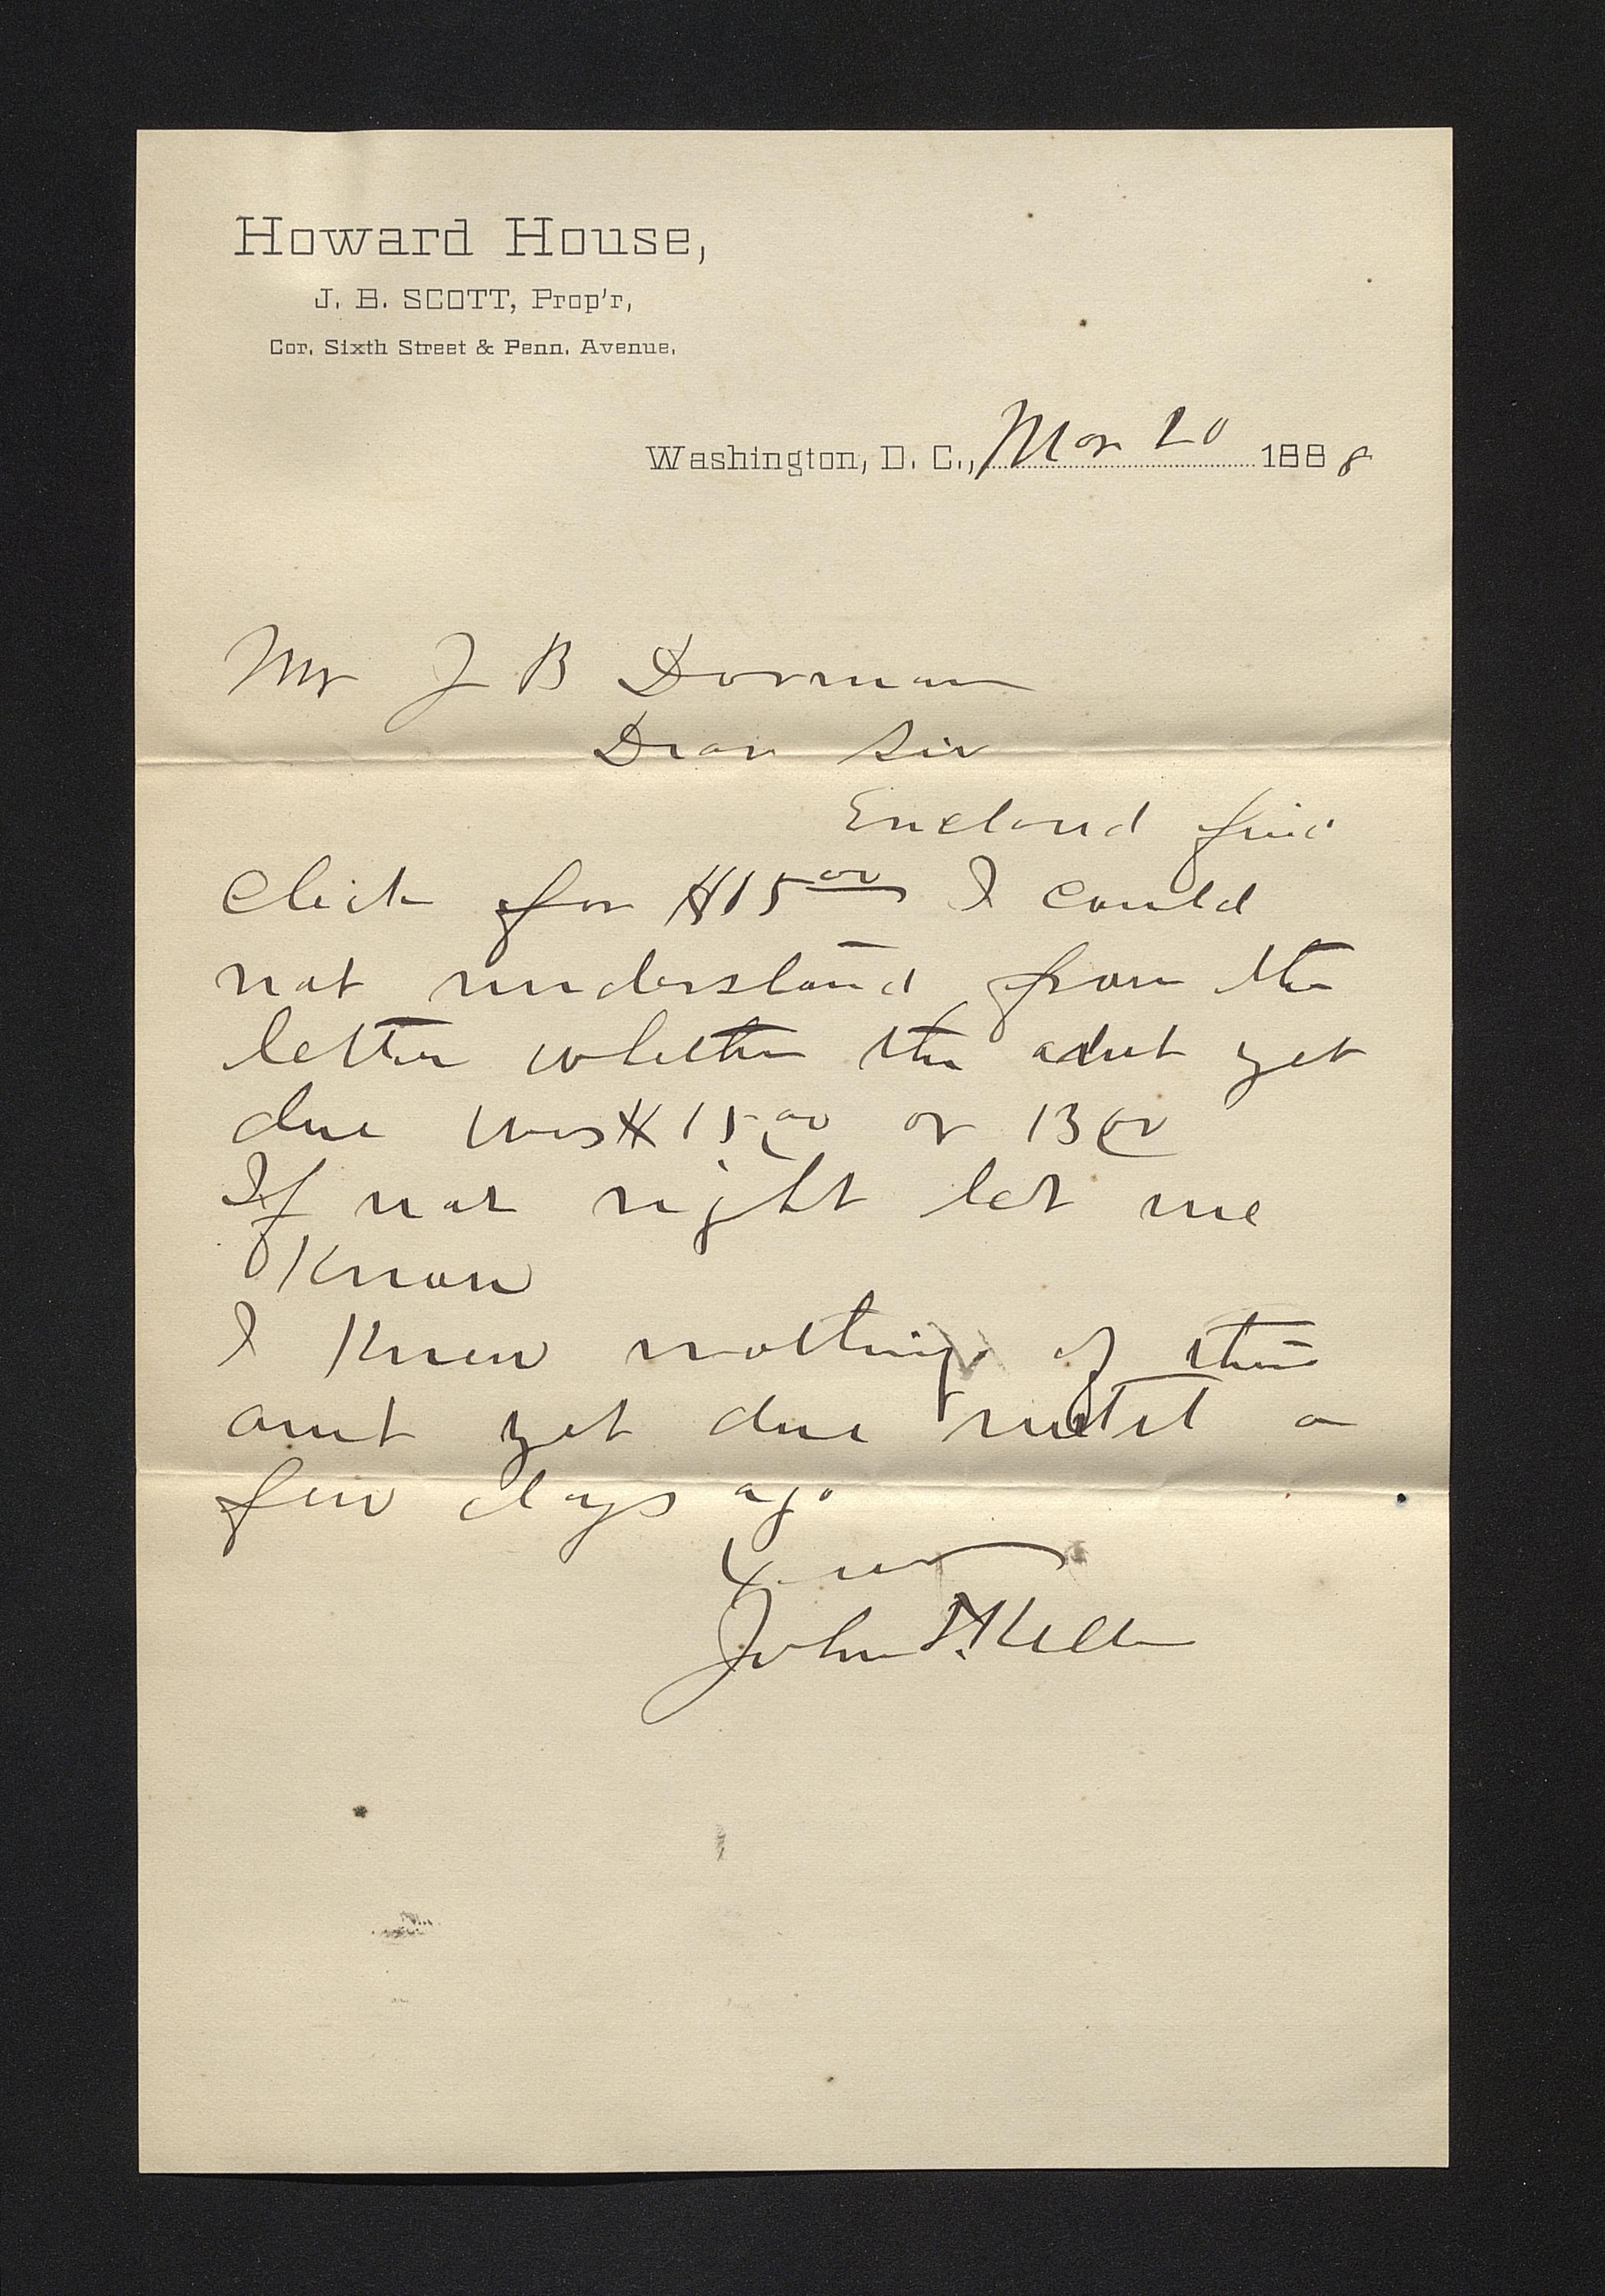 Howard House,
J. B. SCOTT, Prop'r,
Cor. Sixth Street & Penn. Avenue.
Washington, D. C., Mar 20 1888
Mr J B Dorman
Dear Sir
Enclosed find
Check for $15.00 I could
not understand from the
letter whether the amt yet
due was $15.00 or 13.00
If not right let me
Know
I Knew nothing of this
amt yet due until a
few days ago
Yours
John